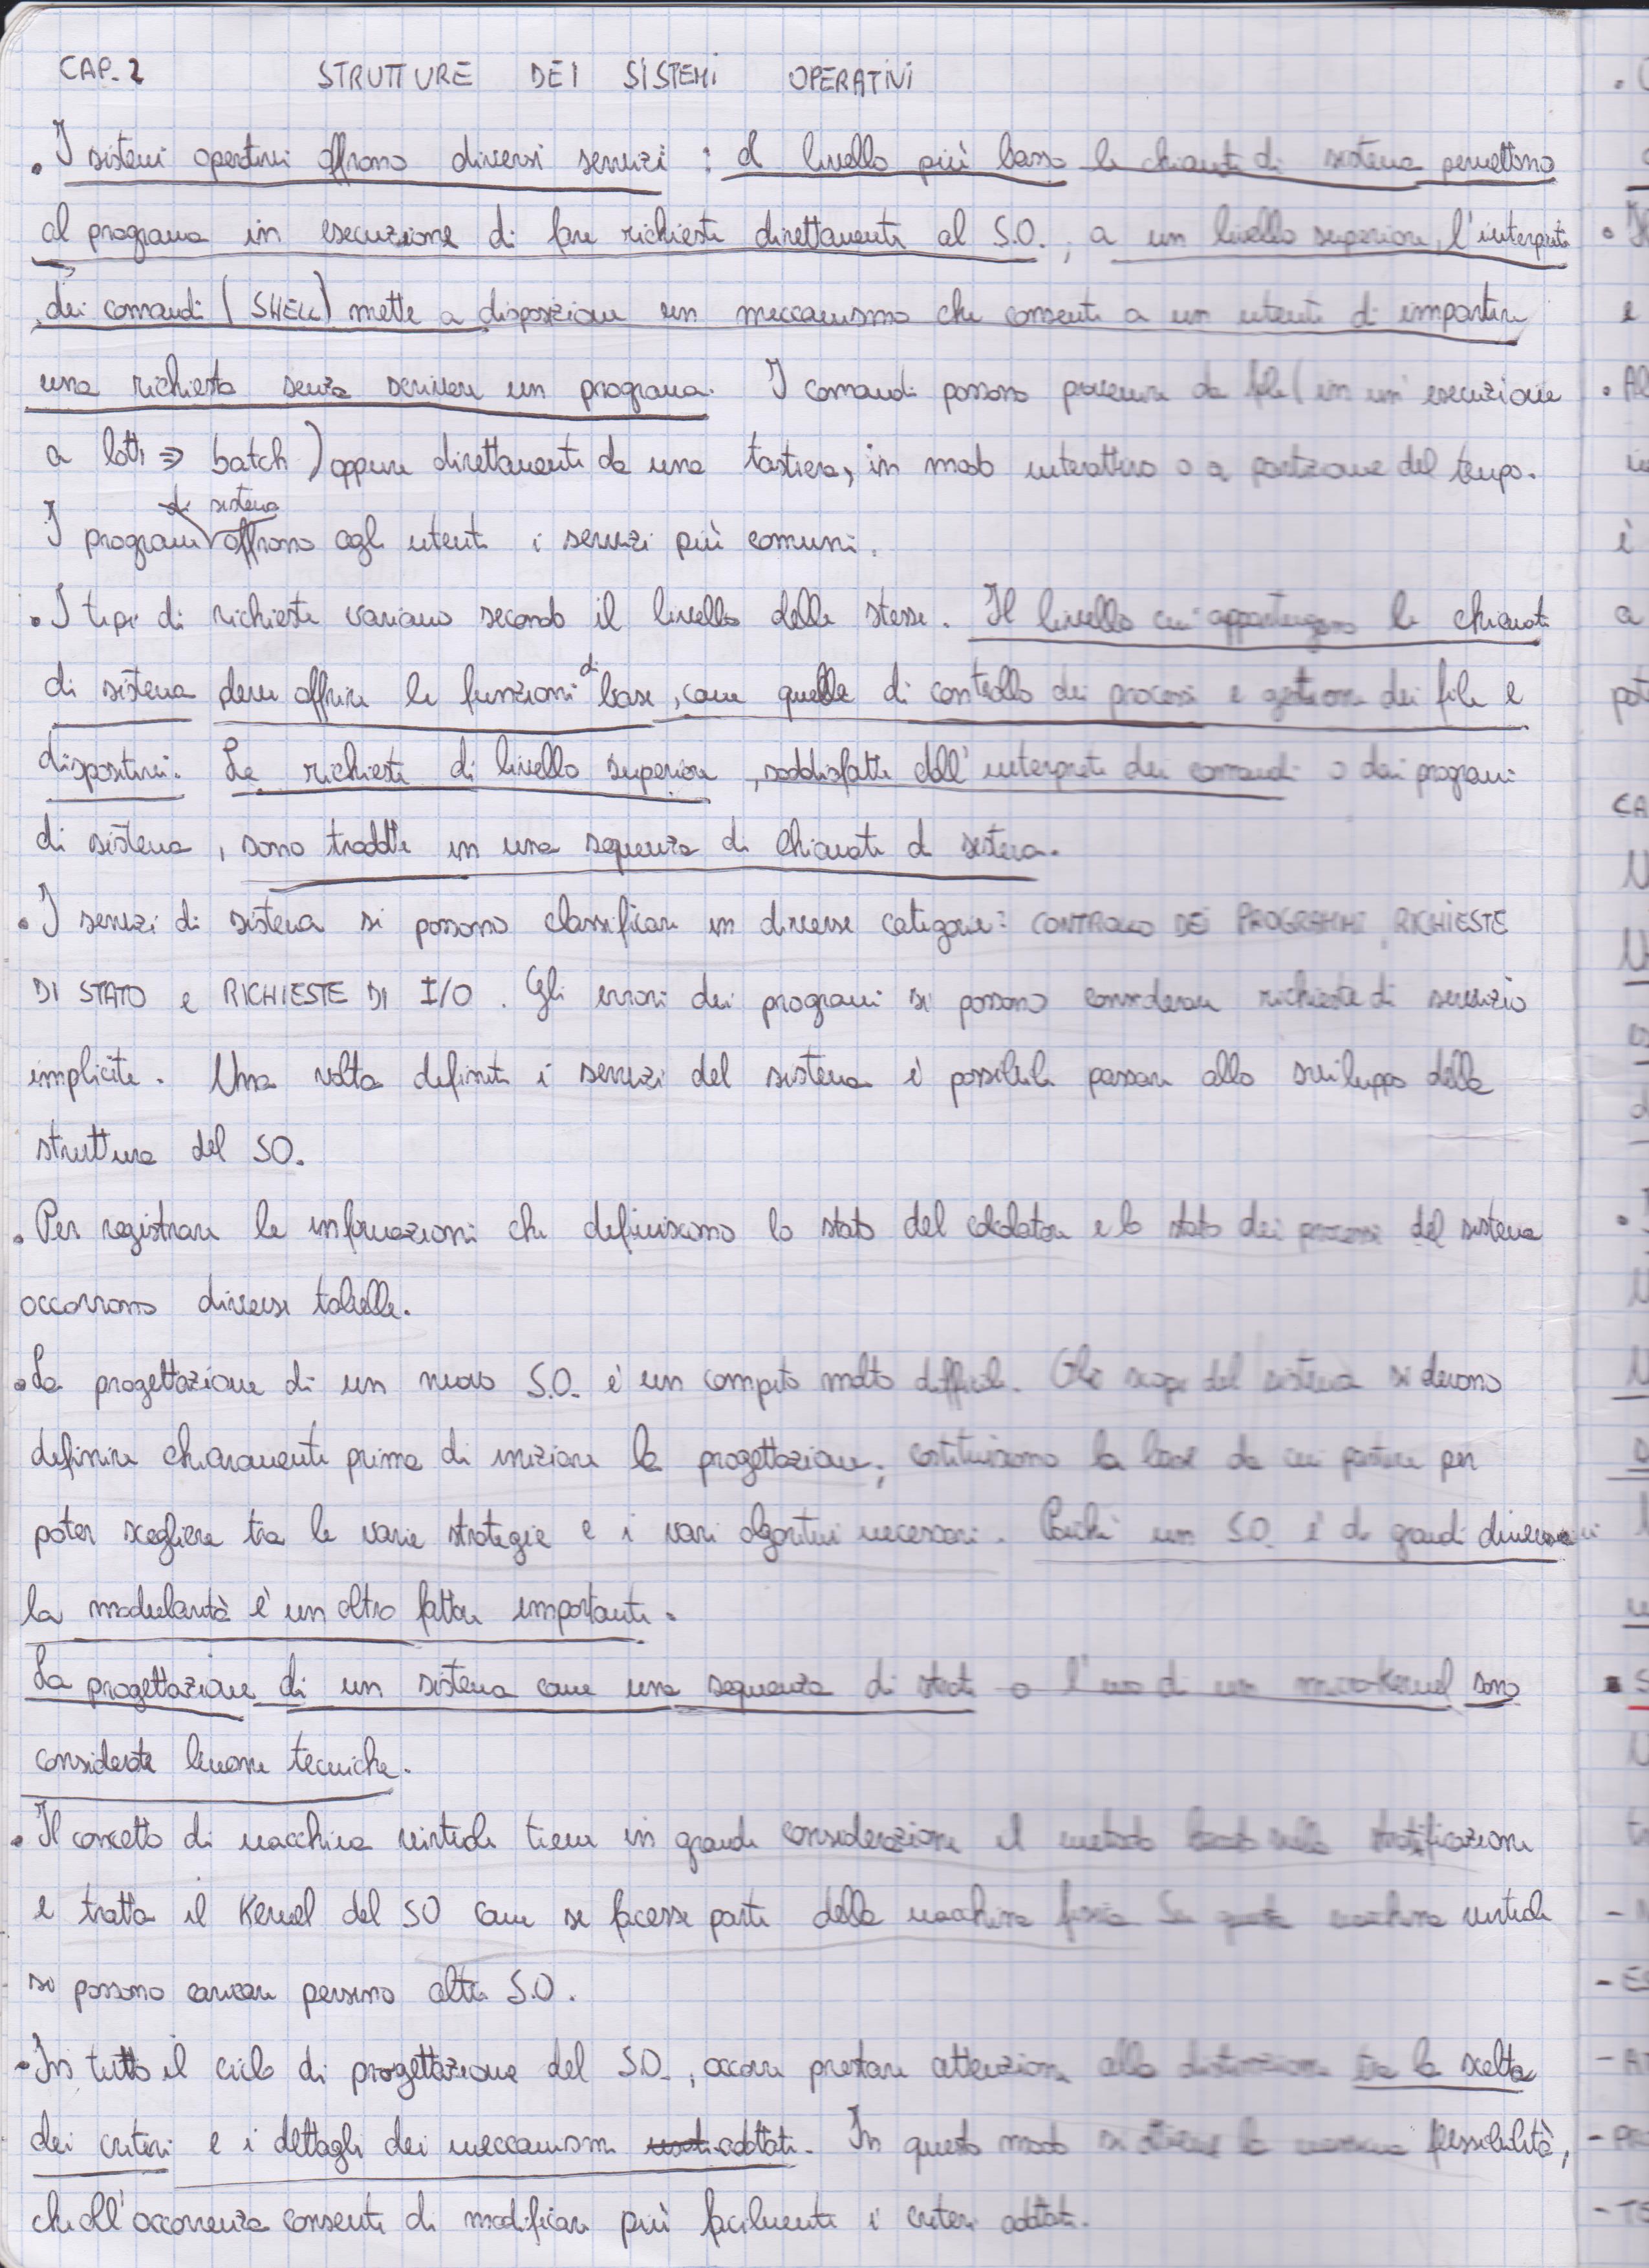 CAP. 2 STRUTTURE DEI SISTEMI OPERATIVI
• I sistemi operativi offrono diversi servizi : al livello più basso le chiamate di sistema permettono
al programma in esecuzione di fare richieste direttamente al S.O. ; a un livello superiore, l'interprete
dei comandi ( SHELL ) mette a disposizione un meccanismo che consente a un utente di impartire
una richiesta senza scrivere un programma. I comandi possono provenire da file ( in un' esecuzione
a lotti => batch ) oppure direttamente da una tastiera, in modo interattivo o a partizione del tempo.
I programmi di sistema offrono agli utenti i servizi più comuni.
• I tipi di richieste variano secondo il livello delle stesse. Il livello cui appartengono le chiamate
di sistema deve offrire le funzioni di base, come quelle di controllo dei processi e gestione dei file e
dispositivi. Le richieste di livello superiore, soddisfatte dall' interprete dei comandi o dai programmi
di sistema, sono tradotte in una sequenza di chiamate di sistema.
• I servizi di sistema si possono classificare in diverse categorie: CONTROLLO DEI PROGRAMMI, RICHIESTE
DI STATO e RICHIESTE DI I/O. Gli errori dei programmi si possono considerare richieste di servizio
implicite. Una volta definiti i servizi del sistema è possibile passare allo sviluppo della
struttura del SO.
• Per registrare le informazioni che definiscono lo stato del calcolatore e lo stato dei processi del sistema
occorrono diverse tabelle.
• La progettazione di un nuovo S.O. è un compito molto difficile. Gli scopi del sistema si devono
definire chiaramente prima di iniziare la progettazione; costituiscono la base da cui partire per
poter scegliere tra le varie strategie e i vari algoritmi necessari. Poiché un S.O. è di grandi dimensioni
la modularità è un altro fattore importante.
La progettazione di un sistema come una sequenza di strati o l'uso di un micro-Kernel sono
considerate buone tecniche.
• Il concetto di macchina virtuale tiene in grande considerazione il metodo basato sulla stratificazione
e tratta il Kernel del SO come se facesse parte della macchina fisica. Su questa macchina virtuale
si possono caricare persino altri S.O.
• In tutto il ciclo di progettazione del S.O., occorre prestare attenzione alla distinzione tra la scelta
dei criteri e i dettagli dei meccanismi adottati. In questo modo si ottiene la massima flessibilità,
che all'occorrenza consente di modificare più facilmente i criteri adottati.